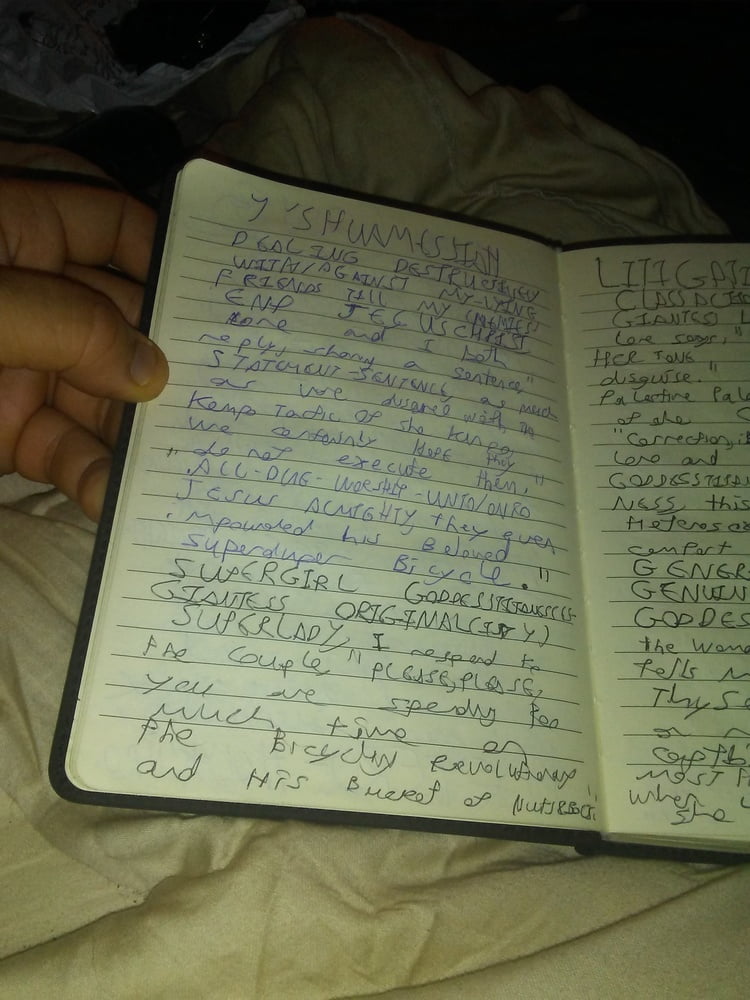 Y'SHUAMESSIAH
DEALING DESTRUCTIVELY
WITH/AGAINST MY LYING
FRIENDS TILL MY ENEMIES
END JESUSCHRIST
and I both
reply, sharing a sentence,"
STATEMENT-SENTENCE as much
as we disagree with the
Kempo Tactic of the
we certainly Hope they
"do not execute them,"
ALL-DUE-WORSHIP-UNTO/ONTO
JESUS ALMIGHTY, they even
impounded his Beloved
Superduper Bicycle."
SUPERGIRL
GIANTESS ORIGINAL(ITY)
SUPERLADY, I respond to
the couple "PLEASE, PLEASE,
you are spending too
much time on
the Bicycling Revolutionary
and His Bucket of
LITIGATI
CLASS ACTIO
GIANTESS L
love says,"
HER TONE
disguise."
Palestine Pale
of the
"Correction, i
love and
NESS, this
comfort
GENER
GENUIN
GODDES
the Woma
tells m
Thy Se
MOST
when
she